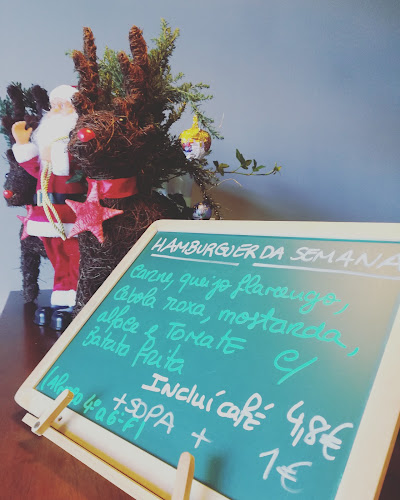 HAMBURGUER DA SEMANA
Carne, queijo flamengo,
cebola roxa, mostarda,
alface e TOMATE C/
Batata frita
INCLUÍ CAFÉ 4,8€
+ SOPA + 1€